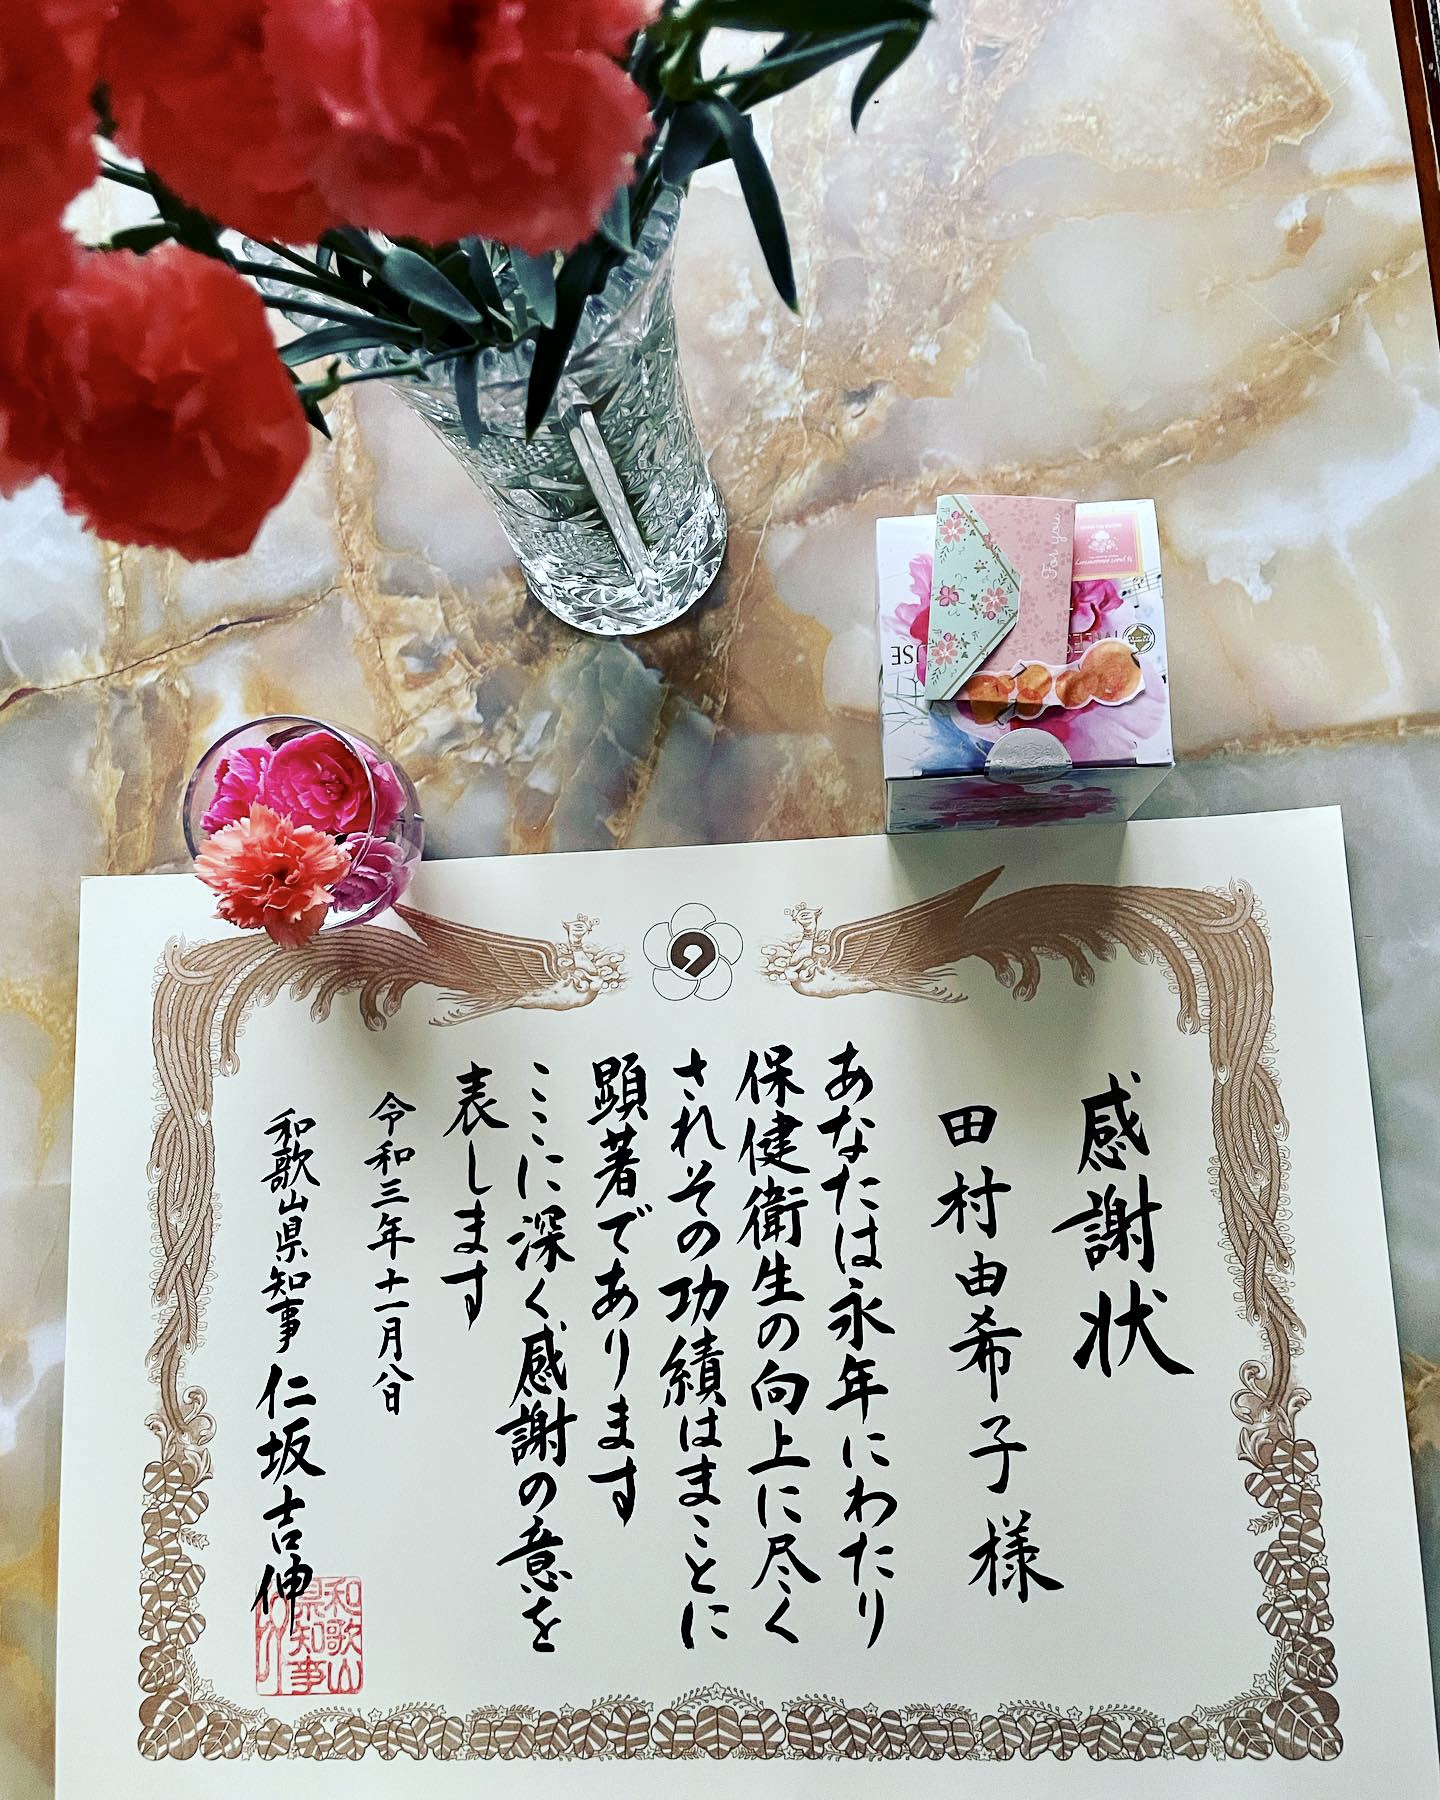 感謝状
田村由希子様
あなたは永年にわたり
保健衛生の向上に尽く
されその功績はまことに
顕著であります
ここに深く感謝の意を
表します
令和三年十一月八日
和歌山県知事 仁坂吉伸
和歌山
県知事
For you